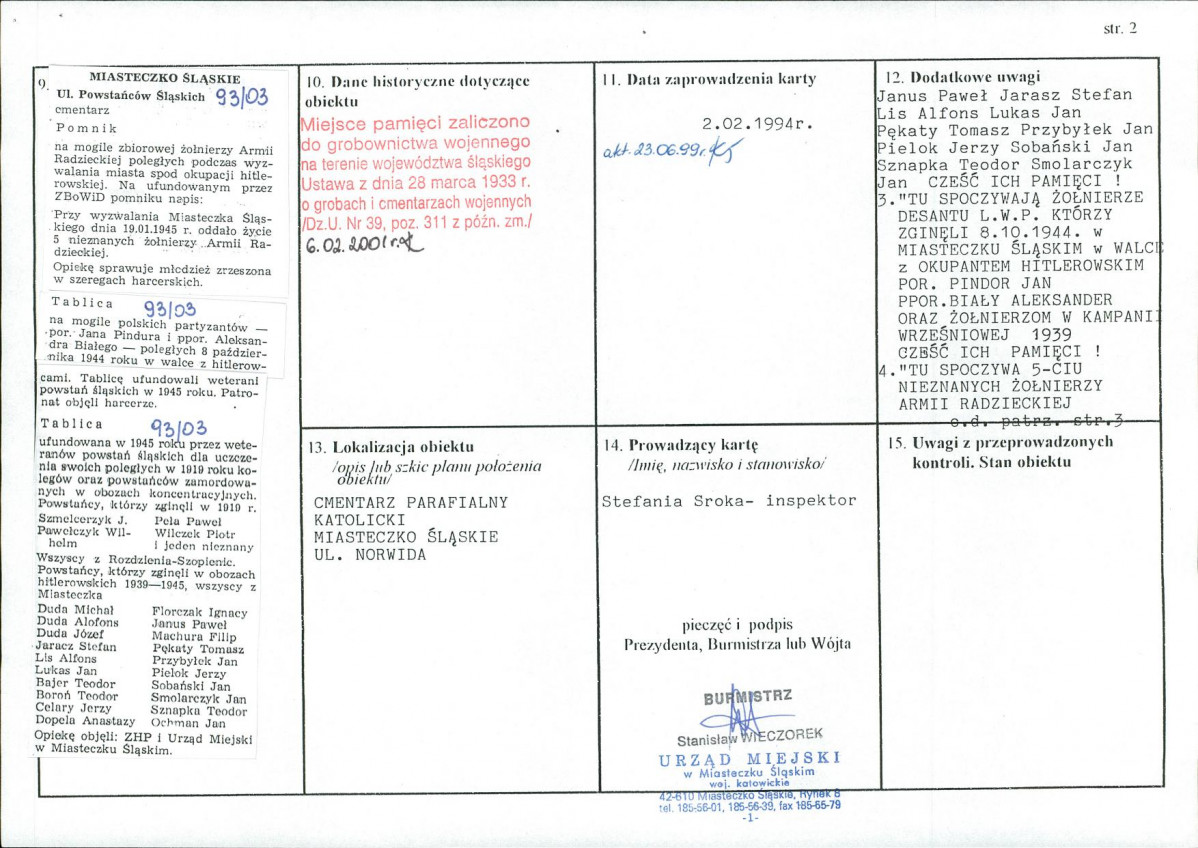 str. 2
9.
MIASTECZKO ŚLĄSKIE
Ul. Powstańców Śląskich 93/03
cmentarz
Pomnik
na mogile zbiorowej żołnierzy Armii
Radzieckiej poległych podczas wyz-
walania miasta spod okupacji hitle-
rowskiej. Na ufundowanym przez
ZBoWiD pomniku napis:
Przy wyzwalania Miasteczka Śląs-
kiego dnia 19.01.1945 r. oddało życie
5 nieznanych żołnierzy Armii Ra-
dzieckiej.
Opiekę sprawuje młodzież zrzeszona
w szeregach harcerskich.
Tablica 93/03
na mogile polskich partyzantów —
por. Jana Pindura i ppor. Aleksan-
dra Białego — poległych 8 paździer-
nika 1944 roku w walce z hitlerow-
cami. Tablicę ufundowali weterani
powstań śląskich w 1945 roku. Patro-
nat objęli harcerze.
Tablica 93/03
ufundowana w 1945 roku przez wete-
ranów powstań śląskich dla uczcze-
nia swoich poległych w 1919 roku ko-
legów oraz powstańców zamordowa-
nych w obozach koncentracyjnych.
Powstańcy, którzy zginęli w 1919 r.
Szmelcerzyk J. Pela Paweł
Pawelczyk Wil- Wilczek Piotr
helm i jeden nieznany
Wszyscy z Rozdzienia-Szopienic.
Powstańcy, którzy zginęli w obozach
hitlerowskich 1939—1945, wszyscy z
Miasteczka
Duda Michał Florczak Ignacy
Duda Alofons Janus Paweł
Duda Józef Machura Filip
Jaracz Stefan Pękaty Tomasz
Lis Alfons Przybyłek Jan
Lukas Jan Pielok Jerzy
Bajer Teodor Sobański Jan
Boroń Teodor Smolarczyk Jan
Celary Jerzy Sznapka Teodor
Dopela Anastazy Ochman Jan
Opiekę objęli: ZHP i Urząd Miejski
w Miasteczku Śląskim.
10. Dane historyczne dotyczące
obiektu
Miejsce pamięci zaliczono
do grobownictwa wojennego
na terenie województwa śląskiego
Ustawa z dnia 28 marca 1933 r.
o grobach i cmentarzach wojennych
/Dz.U. Nr 39, poz. 311 z późn. zm./
6.02.2001 r.
11. Data zaprowadzenia karty
2.02.1994r.
akt. 23.06.99r.
12. Dodatkowe uwagi
Janus Paweł Jarasz Stefan
Lis Alfons Lukas Jan
Pękaty Tomasz Przybyłek Jan
Pielok Jerzy Sobański Jan
Sznapka Teodor Smolarczyk
Jan CZEŚĆ ICH PAMIĘCI !
3."TU SPOCZYWAJĄ ŻOŁNIERZE
DESANTU L.W.P. KTÓRZY
ZGINĘLI 8.10.1944. w
MIASTECZKU ŚLĄSKIM w WALCE
z OKUPANTEM HITLEROWSKIM
POR. PINDOR JAN
PPOR.BIAŁY ALEKSANDER
ORAZ ŻOŁNIERZOM W KAMPANII
WRZEŚNIOWEJ 1939
CZEŚĆ ICH PAMIĘCI !
4."TU SPOCZYWA 5-CIU
NIEZNANYCH ŻOŁNIERZY
ARMII RADZIECKIEJ
c.d. patrz. str.3
13. Lokalizacja obiektu
/opis lub szkic planu położenia
obiektu/
CMENTARZ PARAFIALNY
KATOLICKI
MIASTECZKO ŚLĄSKIE
UL. NORWIDA
14. Prowadzący kartę
/Imię, nazwisko i stanowisko/
Stefania Sroka- inspektor
pieczęć i podpis
Prezydenta, Burmistrza lub Wójta
BURMISTRZ
Stanisław WIECZOREK
URZĄD MIEJSKI
w Miasteczku Śląskim
woj. katowickie
42-610 Miasteczko Śląskie, Rynek 8
tel. 185-56-01, 185-56-39, fax 185-65-79
-1-
15. Uwagi z przeprowadzonych
kontroli. Stan obiektu